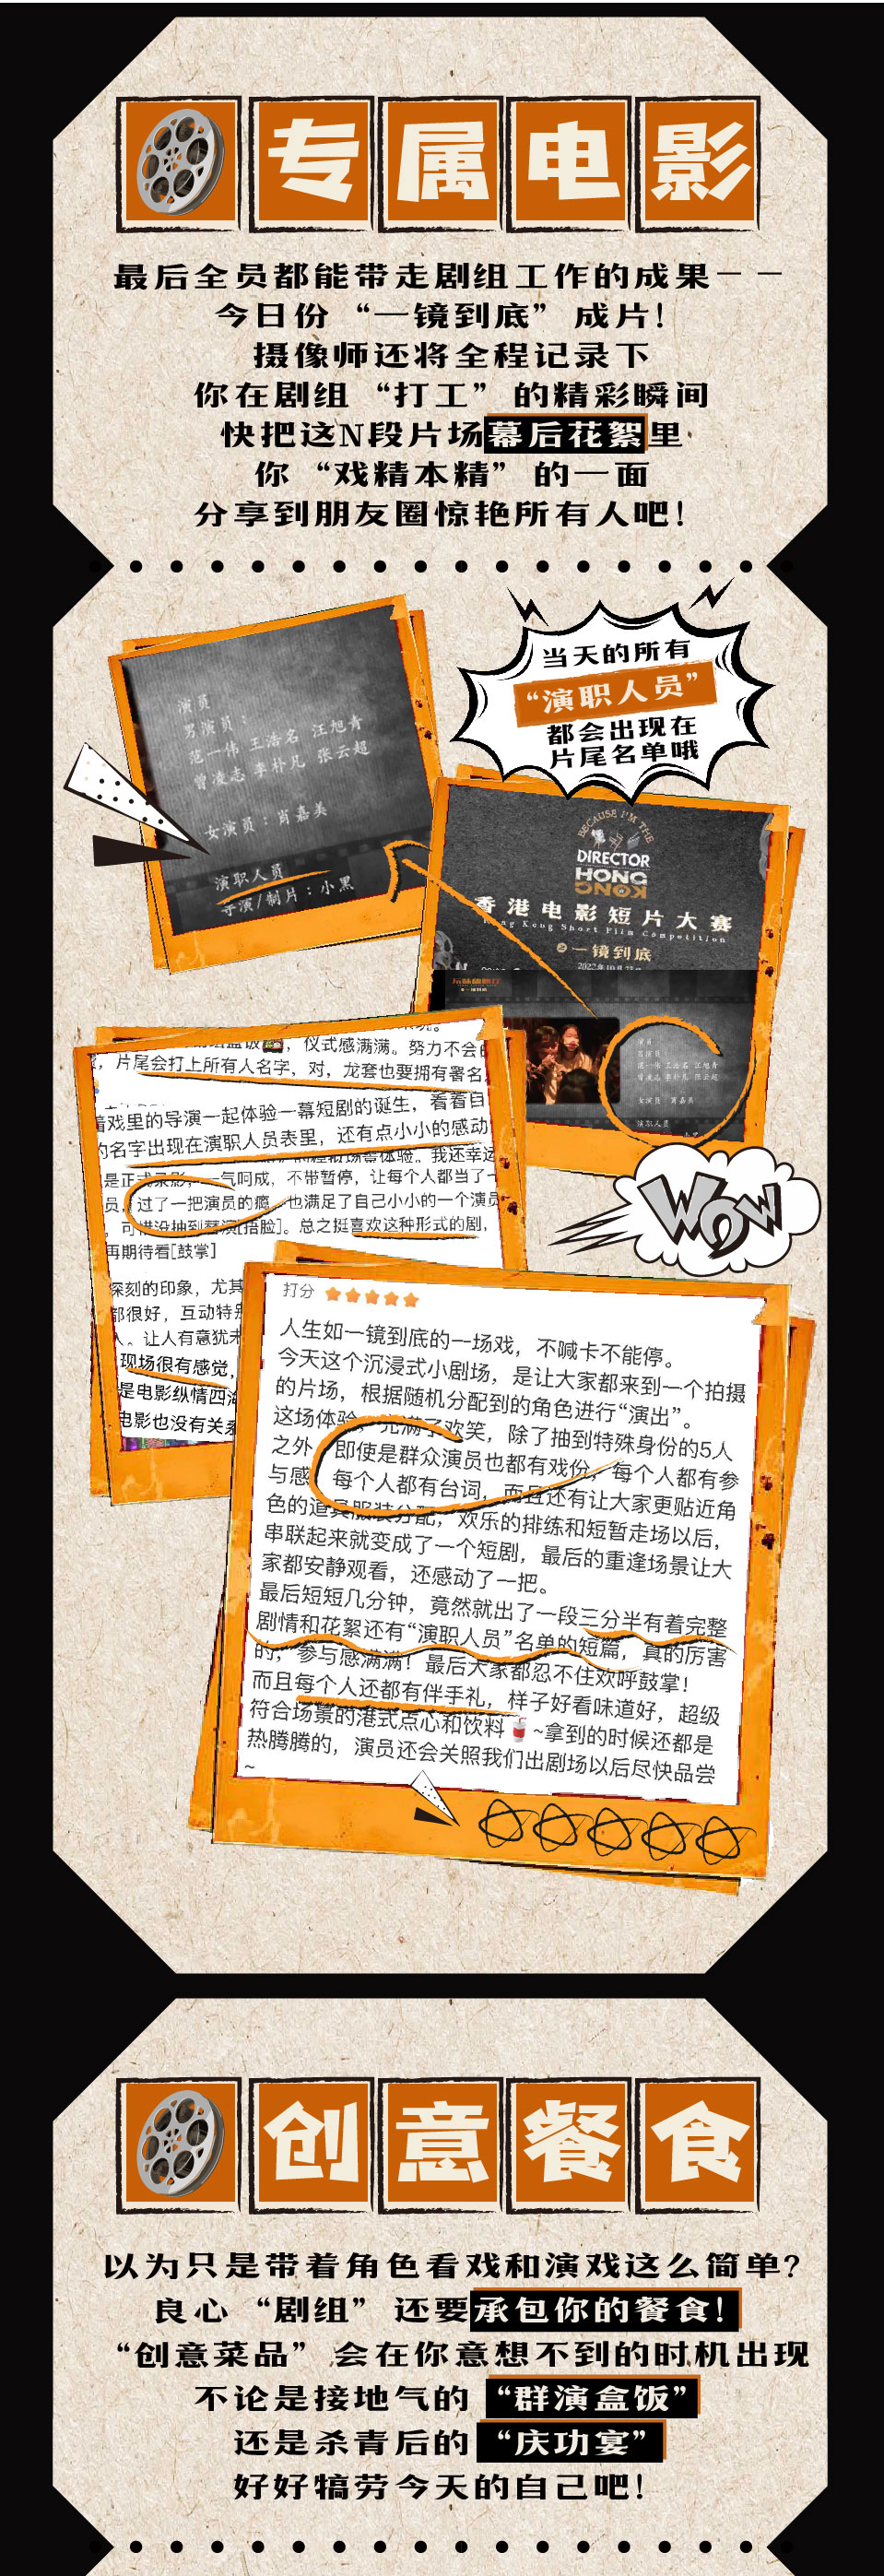 专属电影
最后全员都能带走剧组工作的成果——
今日份“一镜到底”成片！
摄像师还将全程记录下
你在剧组“打工”的精彩瞬间
快把这N段片场幕后花絮里
你“戏精本精”的一面
分享到朋友圈惊艳所有人吧！
当天的所有
“演职人员”
都会出现在
片尾名单哦
演员
男演员：
范一伟 王浩名 汪旭青
曾凌志 李朴凡 张云超
女演员：肖嘉美
演职人员
导演/制片：小黑
BECAUSE I'M THE
DIRECTOR
HONG
KONG
香港电影短片大赛
Hong Kong Short Film Competition
之一镜到底
演员
男演员
范一伟 王浩名 汪旭青
曾凌志 李朴凡 张云超
女演员：肖嘉美
演职人员
，仪式感满满。努力不会
，片尾会打上所有人名字，对，龙套也要拥有署名
着戏里的导演一起体验一幕短剧的诞生，看着自
的名字出现在演职人员表里，还有点小小的感动
体验。我还幸运
是正式录影，一气呵成，不带暂停，让每个人都当了一
员，过了一把演员的瘾，也满足了自己小小的一个演员
，可惜没抽到替演[捂脸]。总之挺喜欢这种形式的剧，
再期待看[鼓掌]
深刻的印象，尤其
都很好，互动特别
人。让人有意犹未
现场很有感觉，
是电影纵情四海
电影也没有关系
WOW
打分
人生如一镜到底的一场戏，不喊卡不能停。
今天这个沉浸式小剧场，是让大家都来到一个拍摄
的片场，根据随机分配到的角色进行“演出”。
这场体验，充满了欢笑，除了抽到特殊身份的5人
之外，即使是群众演员也都有戏份，每个人都有参
与感，每个人都有台词，而且还有让大家更贴近角
色的道具服装分配，欢乐的排练和短暂走场以后，
串联起来就变成了一个短剧，最后的重逢场景让大
家都安静观看，还感动了一把。
最后短短几分钟，竟然就出了一段三分半有着完整
剧情和花絮还有“演职人员”名单的短篇，真的厉害
的，参与感满满！最后大家都忍不住欢呼鼓掌！
而且每个人还都有伴手礼，样子好看味道好，超级
符合场景的港式点心和饮料🥤~拿到的时候还都是
热腾腾的，演员还会关照我们出剧场以后尽快品尝
~
创意餐食
以为只是带着角色看戏和演戏这么简单？
良心“剧组”还要承包你的餐食！
“创意菜品”会在你意想不到的时机出现
不论是接地气的“群演盒饭”
还是杀青后的“庆功宴”
好好犒劳今天的自己吧！